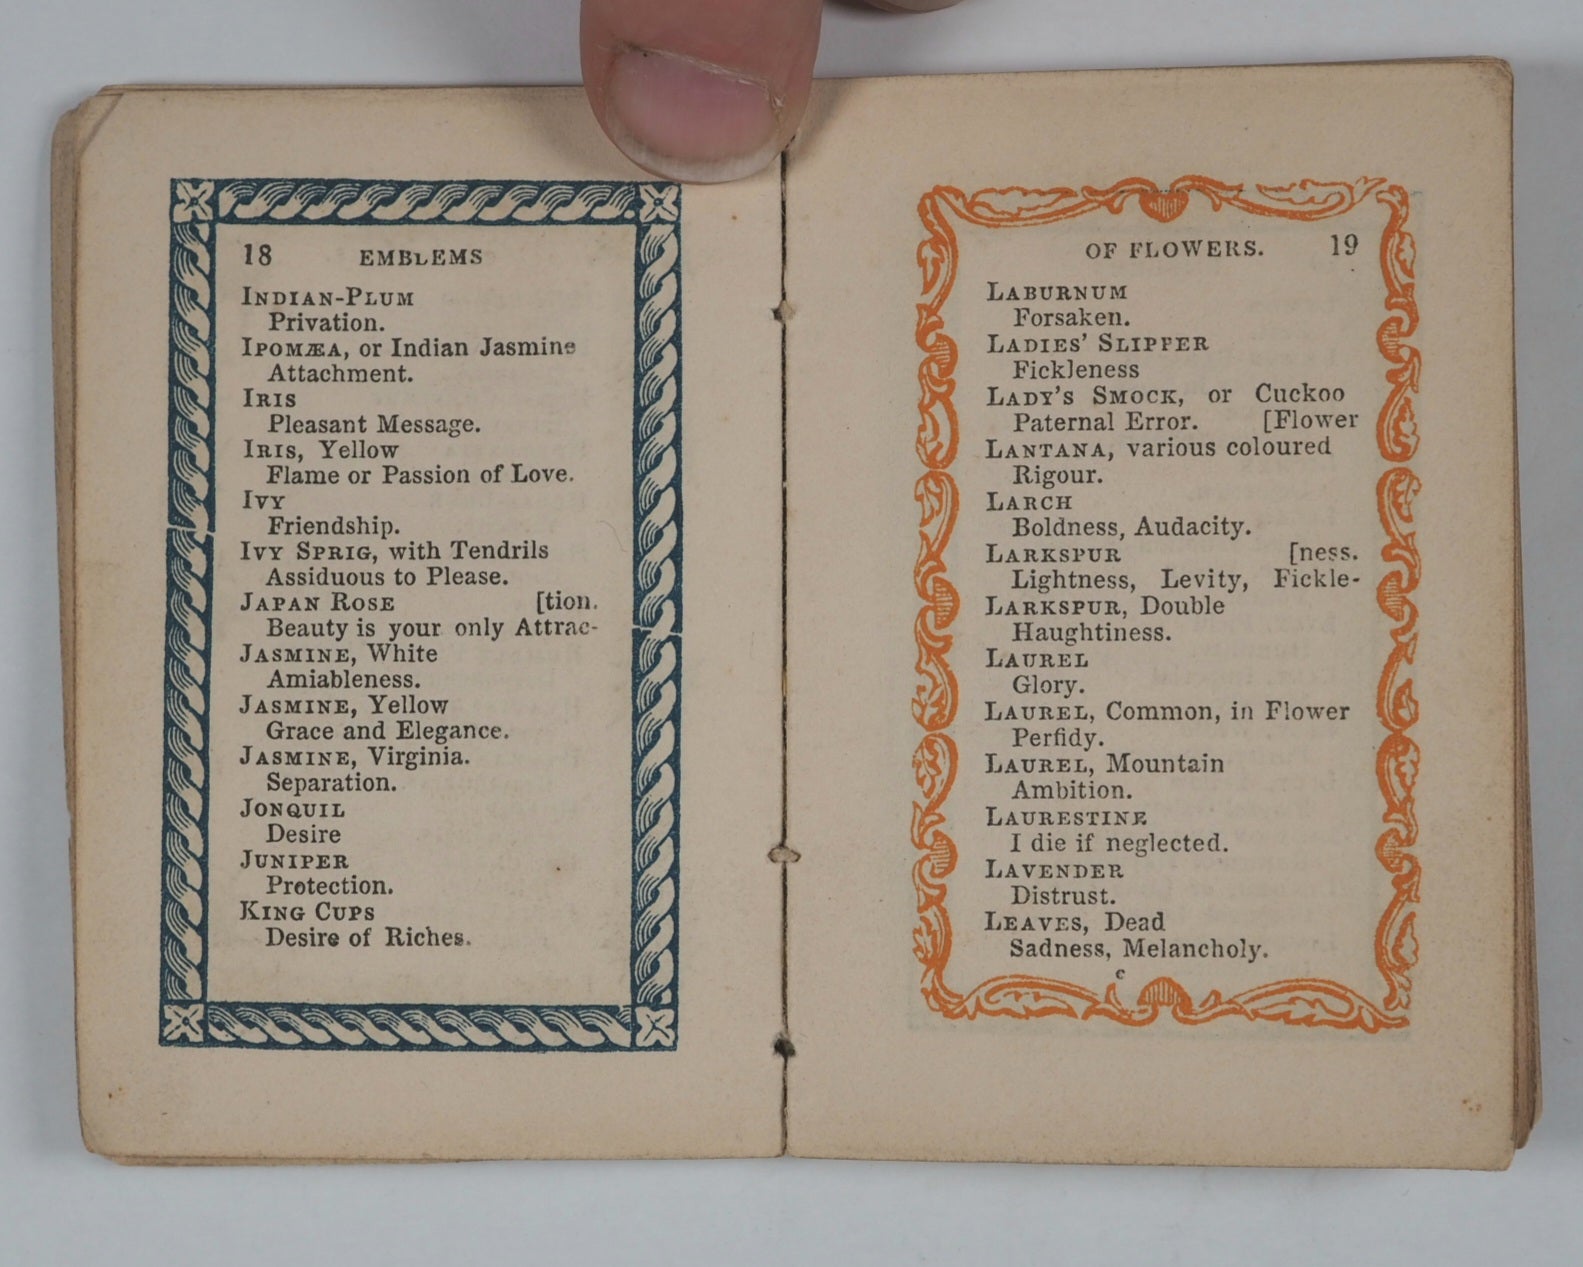 18 EMBLEMS
INDIAN-PLUM
Privation.
IPOMÆA, or Indian Jasmine
Attachment.
IRIS
Pleasant Message.
IRIS, Yellow
Flame or Passion of Love.
IVY
Friendship.
IVY SPRIG, with Tendrils
Assiduous to Please.
JAPAN ROSE [tion.
Beauty is your only Attrac-
JASMINE, White
Amiableness.
JASMINE, Yellow
Grace and Elegance.
JASMINE, Virginia.
Separation.
JONQUIL
Desire
JUNIPER
Protection.
KING CUPS
Desire of Riches.
OF FLOWERS. 19
LABURNUM
Forsaken.
LADIES' SLIPPER
Fickleness
LADY'S SMOCK, or Cuckoo
Paternal Error. [Flower
LANTANA, various coloured
Rigour.
LARCH
Boldness, Audacity.
LARKSPUR [ness.
Lightness, Levity, Fickle-
LARKSPUR, Double
Haughtiness.
LAUREL
Glory.
LAUREL, Common, in Flower
Perfidy.
LAUREL, Mountain
Ambition.
LAURESTINE
I die if neglected.
LAVENDER
Distrust.
LEAVES, Dead
Sadness, Melancholy.
c